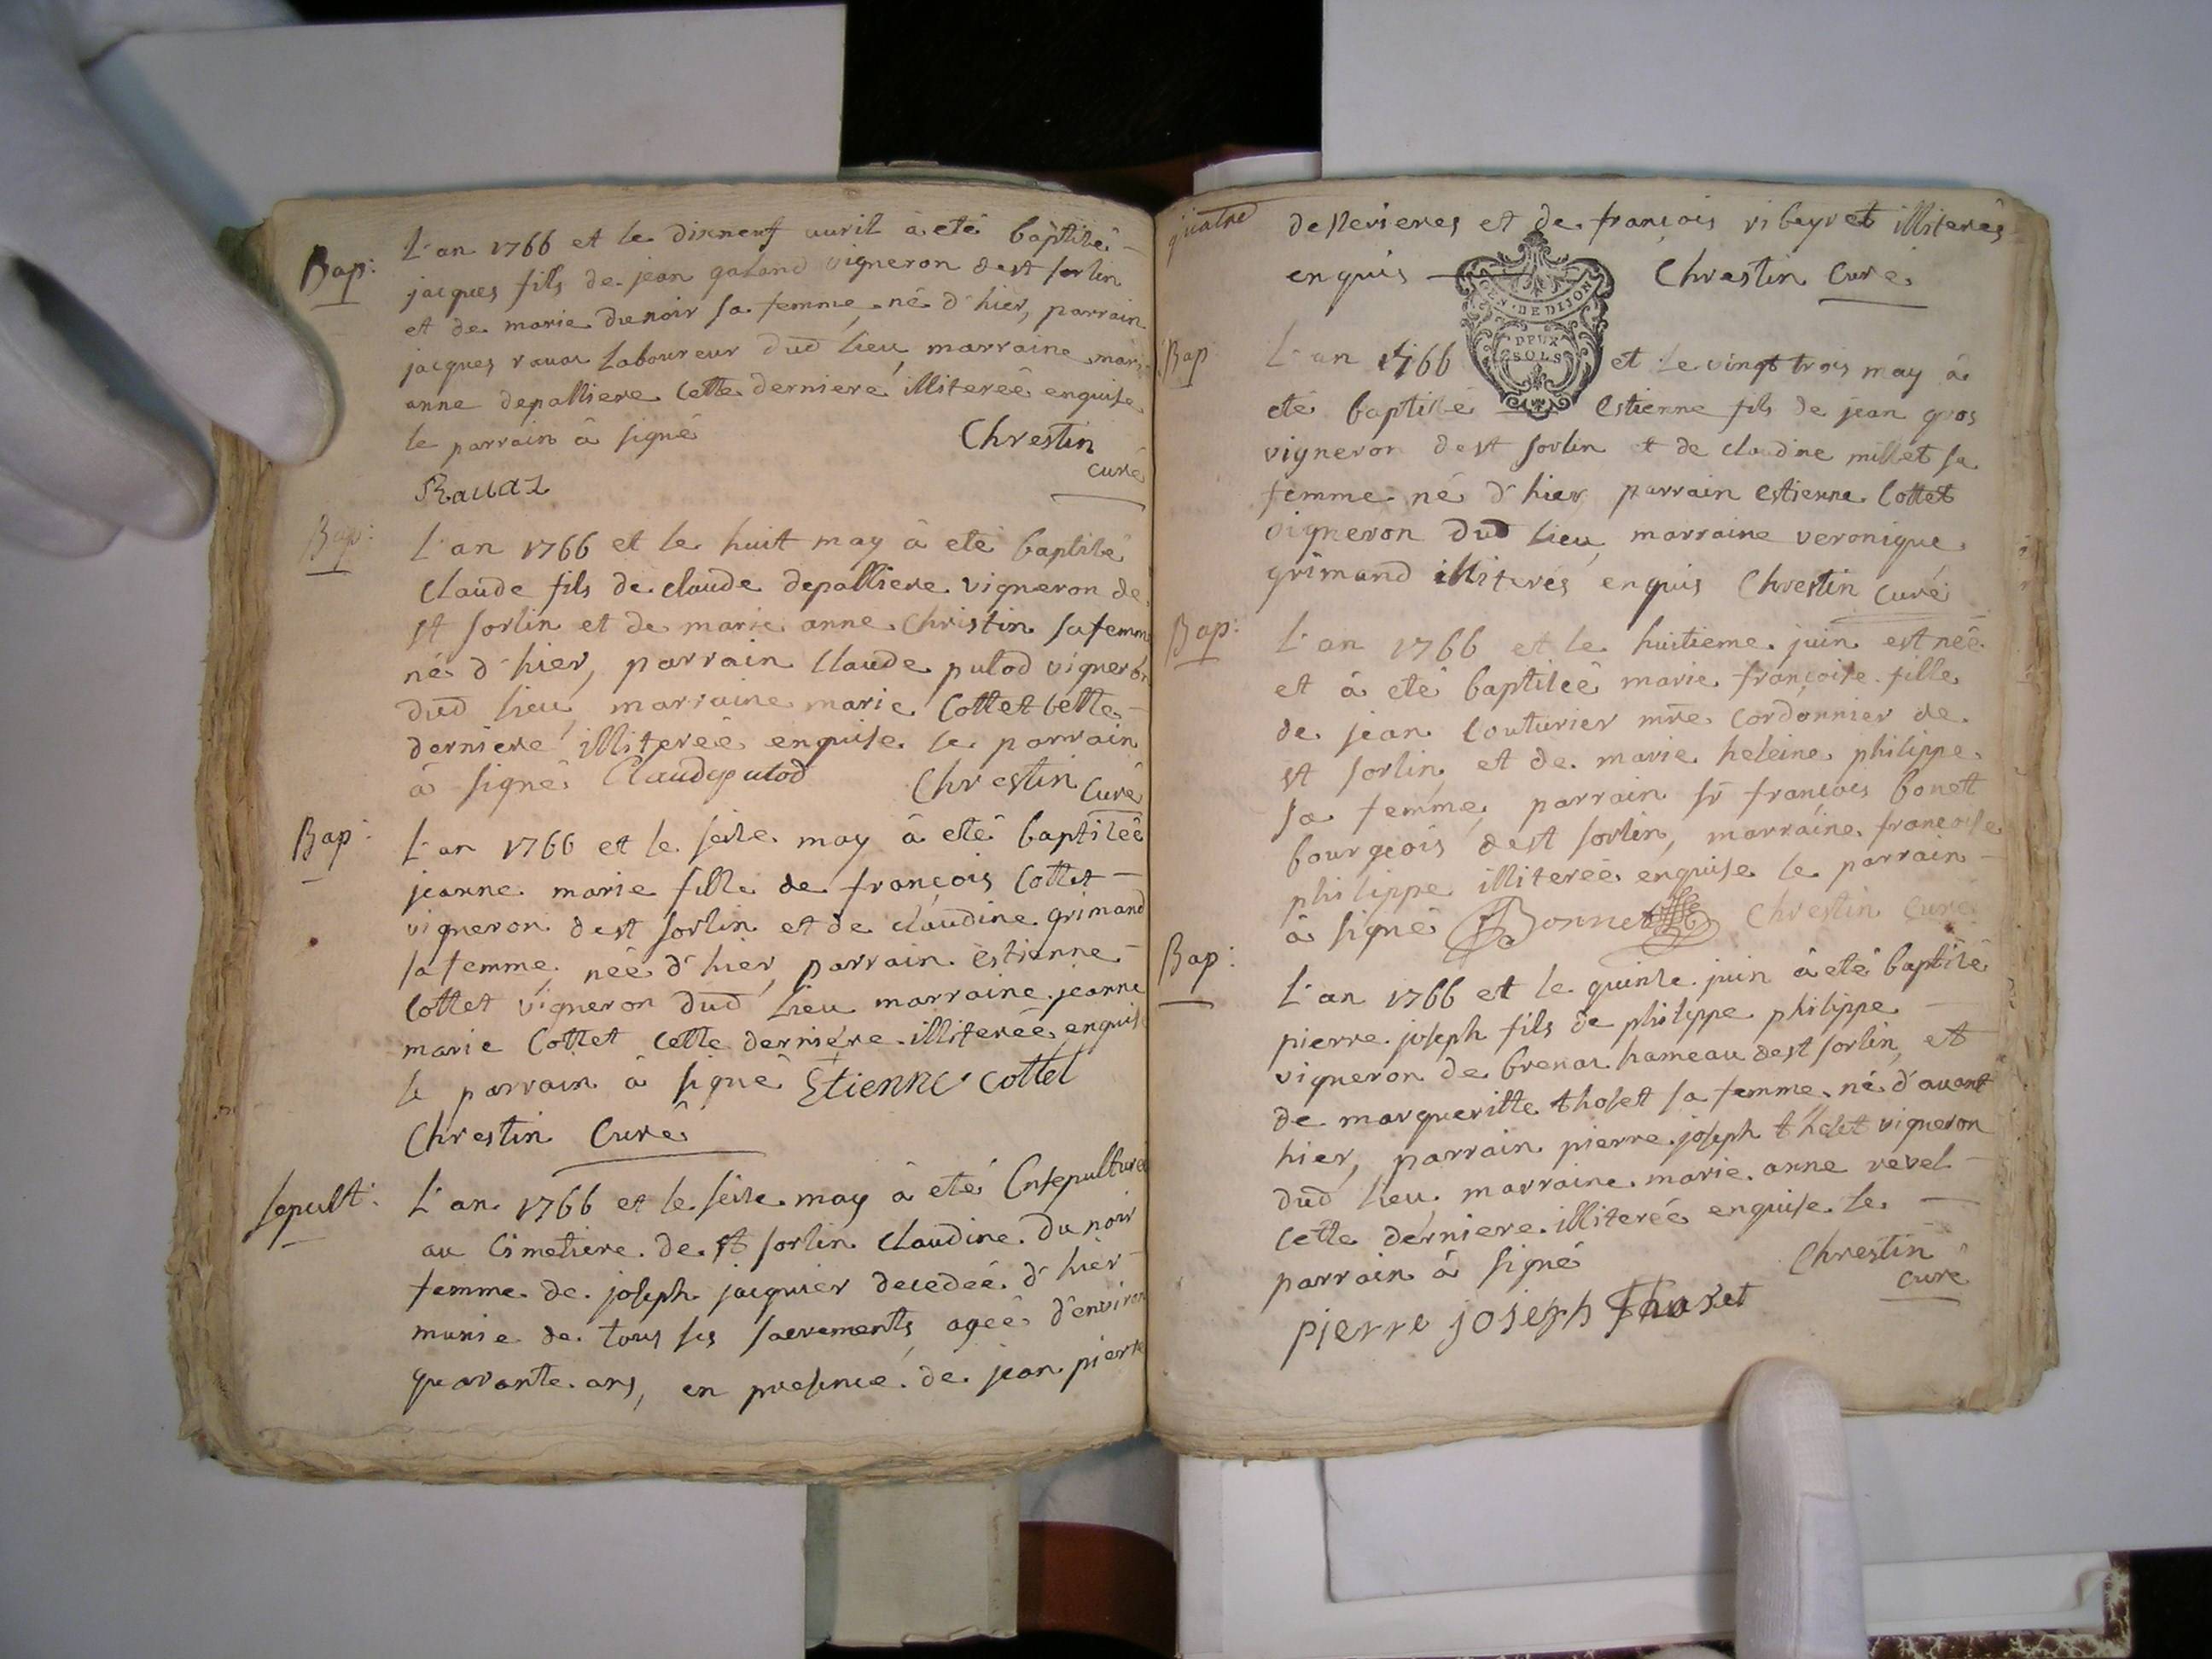 Bap: L'an 1766 et le dixneuf avril à eté baptisé
jacques fils de jean galand vigneron de st sorlin
et de marie dunoir sa femme, né d'hier, parrain
jacques ravat laboureur dud lieu, marraine marie
anne depalliere cette derniere illitereé enquise
le parrain à signé Chrestin
curé
Ravaz
Bap: L'an 1766 et le huit may à eté baptisé
claude fils de claude depalliere vigneron de
st sorlin et de marie anne Christin sa femme
né d'hier, parrain claude putod vigneron
dud lieu, marraine marie Cottet cette
derniere illitereé enquise le parrain
à signé Claude putod Chrestin Curé
Bap: L'an 1766 et le seize may à eté baptiseé
jeanne marie fille de françois Cottet
vigneron de st sorlin et de claudine grimand
sa femme, neé d'hier, parrain estienne
Cottet vigneron dud lieu marraine jeanne
marie Cottet cette derniere illitereé enquise
le parrain à signé Etienne cottet
Chrestin Curé
sepult: L'an 1766 et le seize may à eté Ensepulturé
au Cimetiere de st sorlin claudine Dunoir
femme de joseph jacquier decedeé d'hier
munie de tous ses sacrements, ageé d'environ
quarante ans, en presence de jean pierre
quatre
et de françois ribeyret illiterés
enquis Chrestin Curé
GEN. DE DIJON
DEUX
SOLS
Bap L'an 1766 et le vingt trois may à
eté baptisé Estienne fils de jean gros
vigneron de st sorlin et de claudine millet sa
femme né d'hier parrain estienne Cottet
vigneron dud lieu, marraine veronique
grimand illiterés enquis Chrestin Curé
Bap: L'an 1766 et le huitieme juin est neé
et à eté baptiseé marie françoise fille
de jean Couturier mre Cordonnier de
st sorlin, et de marie heleine philippe
sa femme, parrain sr françois bonet
bourgeois de st sorlin, marraine françoise
philippe illitereé enquise le parrain
à signé Bonnet Chrestin Curé
Bap: L'an 1766 et le quinze juin à eté baptisé
pierre joseph fils de philippe philippe
vigneron de brenaz hameau de st sorlin, et
de margueritte thoset sa femme, né d'avant
hier, parrain pierre joseph thoset vigneron
dud lieu, marraine marie anne revel
cette derniere illitereé enquise le
parrain à signé Chrestin
curé
pierre joseph Thoset